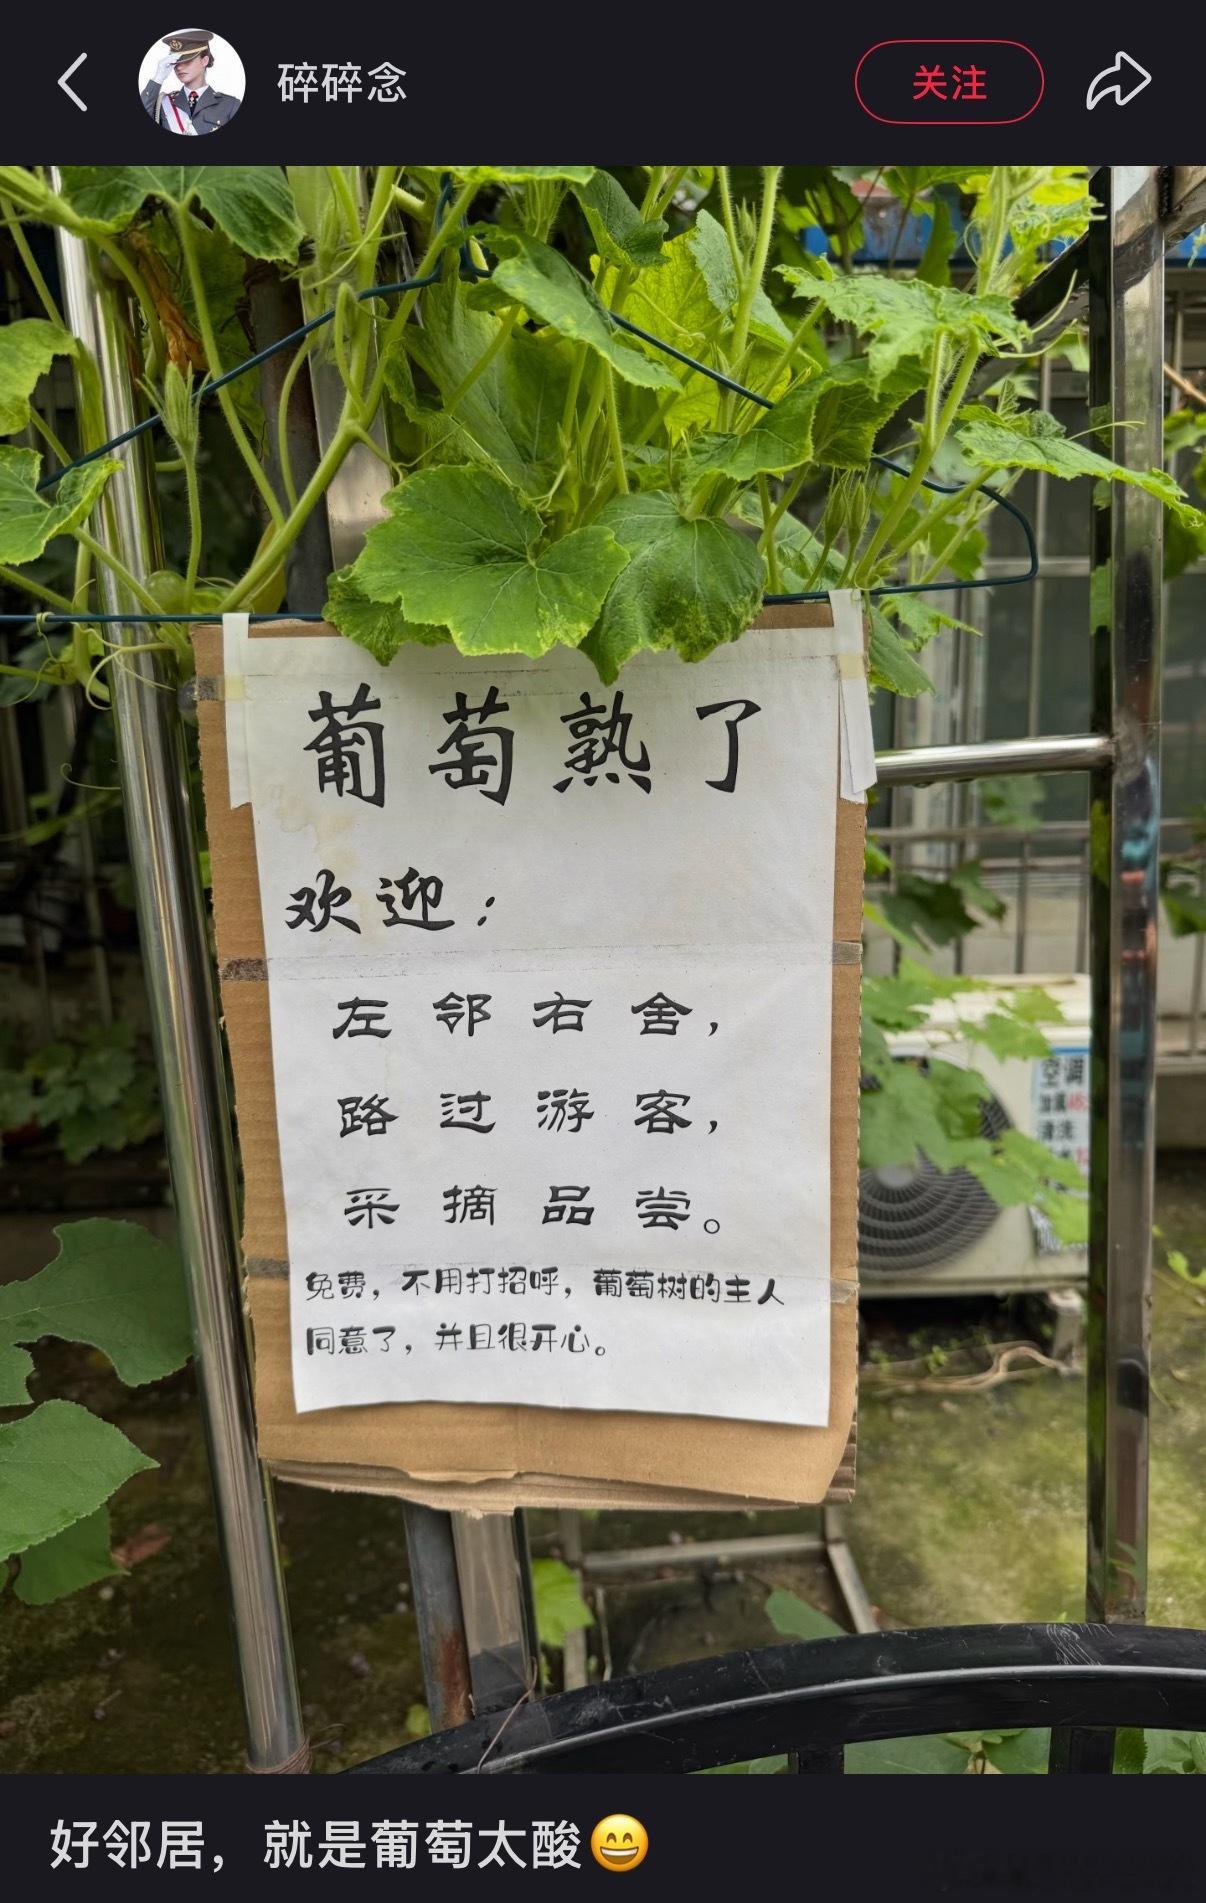 碎碎念
关注
葡萄熟了
欢迎：
左邻右舍，
路过游客，
采摘品尝。
免费，不用打招呼，葡萄树的主人
同意了，并且很开心。
空调
清洗
好邻居，就是葡萄太酸😄